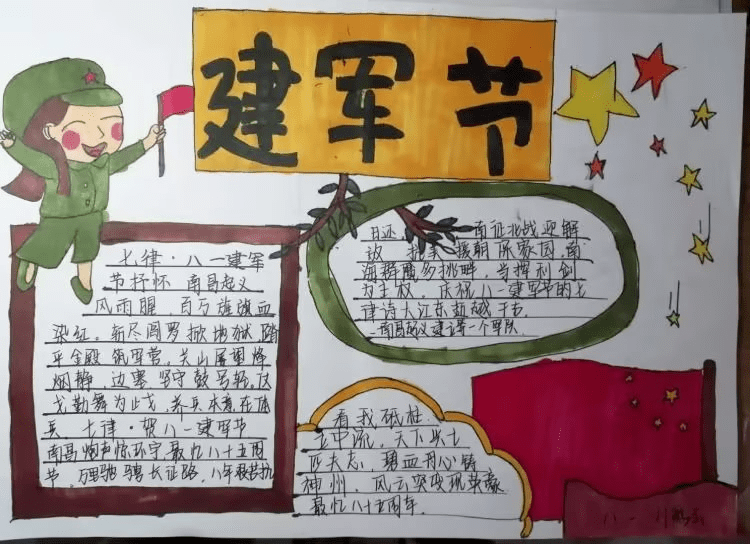 建军节
七律·八一建军
节抒怀 南昌起义
风雨腥，百万旌旗血
染红。斩尽阎罗掀地狱，踏
平金殿筑思营，关山屡里烽
烟静，边塞坚守鼓号轻，
戈勤舞为止戈，养兵本意在
兵，七律·贺八一建军节
南昌炮声惊环宇，最忆八十五周
节，万里驰骋长征路，八年
南征北战迎解
放，抗美援朝保家园，南
海群魔多挑衅，当挥利剑
为主权，庆祝八一建军节的七
律诗大江东
南昌起义建 一个军队
看我砥柱
立中流，天下兴亡
匹夫志，碧血丹心铸
神州，风云突变现英豪
最忆八十五周年，
八一